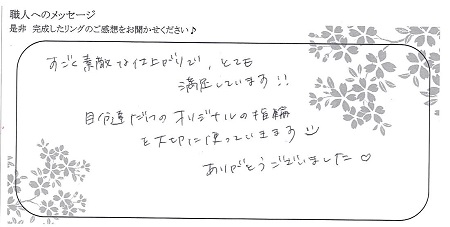 職人へのメッセージ
是非 完成したリングのご感想をお聞かせください♪
すごく素敵な仕上がりで、とても
満足しています!!
自分達だけのオリジナルの指輪
を大切に使っていきます
ありがとうございました♡